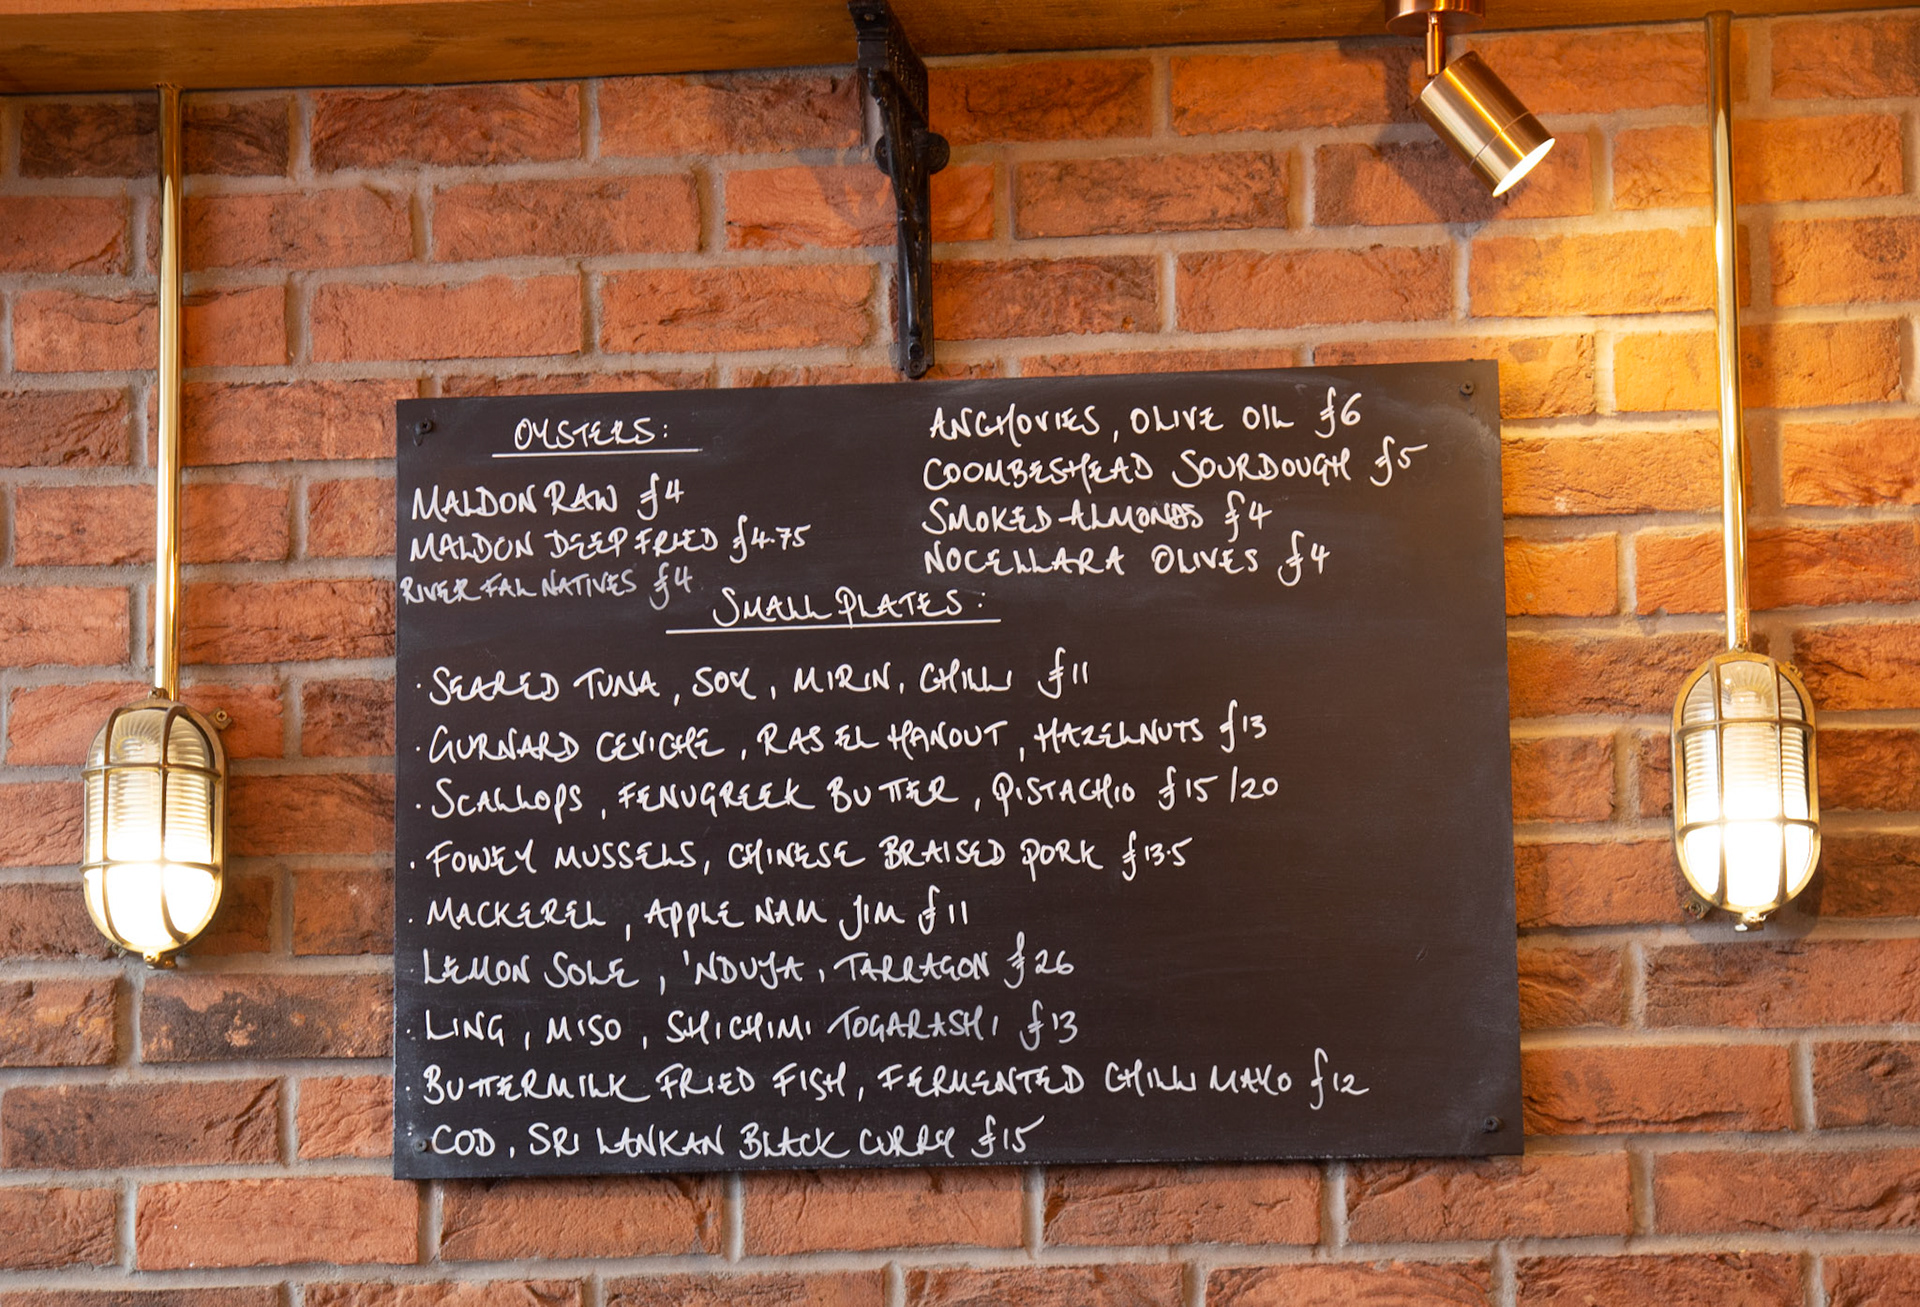 OYSTERS:
MALDON RAW £4
MALDON DEEP FRIED £4.75
RIVER FAL NATIVES £4
ANCHOVIES, OLIVE OIL £6
COOMBESHEAD SOURDOUGH £5
SMOKED ALMONDS £4
NOCELLARA OLIVES £4
SMALL PLATES:
· SEARED TUNA, SOY, MIRIN, CHILLI £11
· GURNARD CEVICHE, RAS EL HANOUT, HAZELNUTS £13
· SCALLOPS, FENUGREEK BUTTER, PISTACHIO £15/20
· FOWEY MUSSELS, CHINESE BRAISED PORK £13.5
· MACKEREL, APPLE NAM JIM £11
· LEMON SOLE, 'NDUJA, TARRAGON £26
· LING, MISO, SHICHIMI TOGARASHI £13
· BUTTERMILK FRIED FISH, FERMENTED CHILLI MAYO £12
· COD, SRI LANKAN BLACK CURRY £15